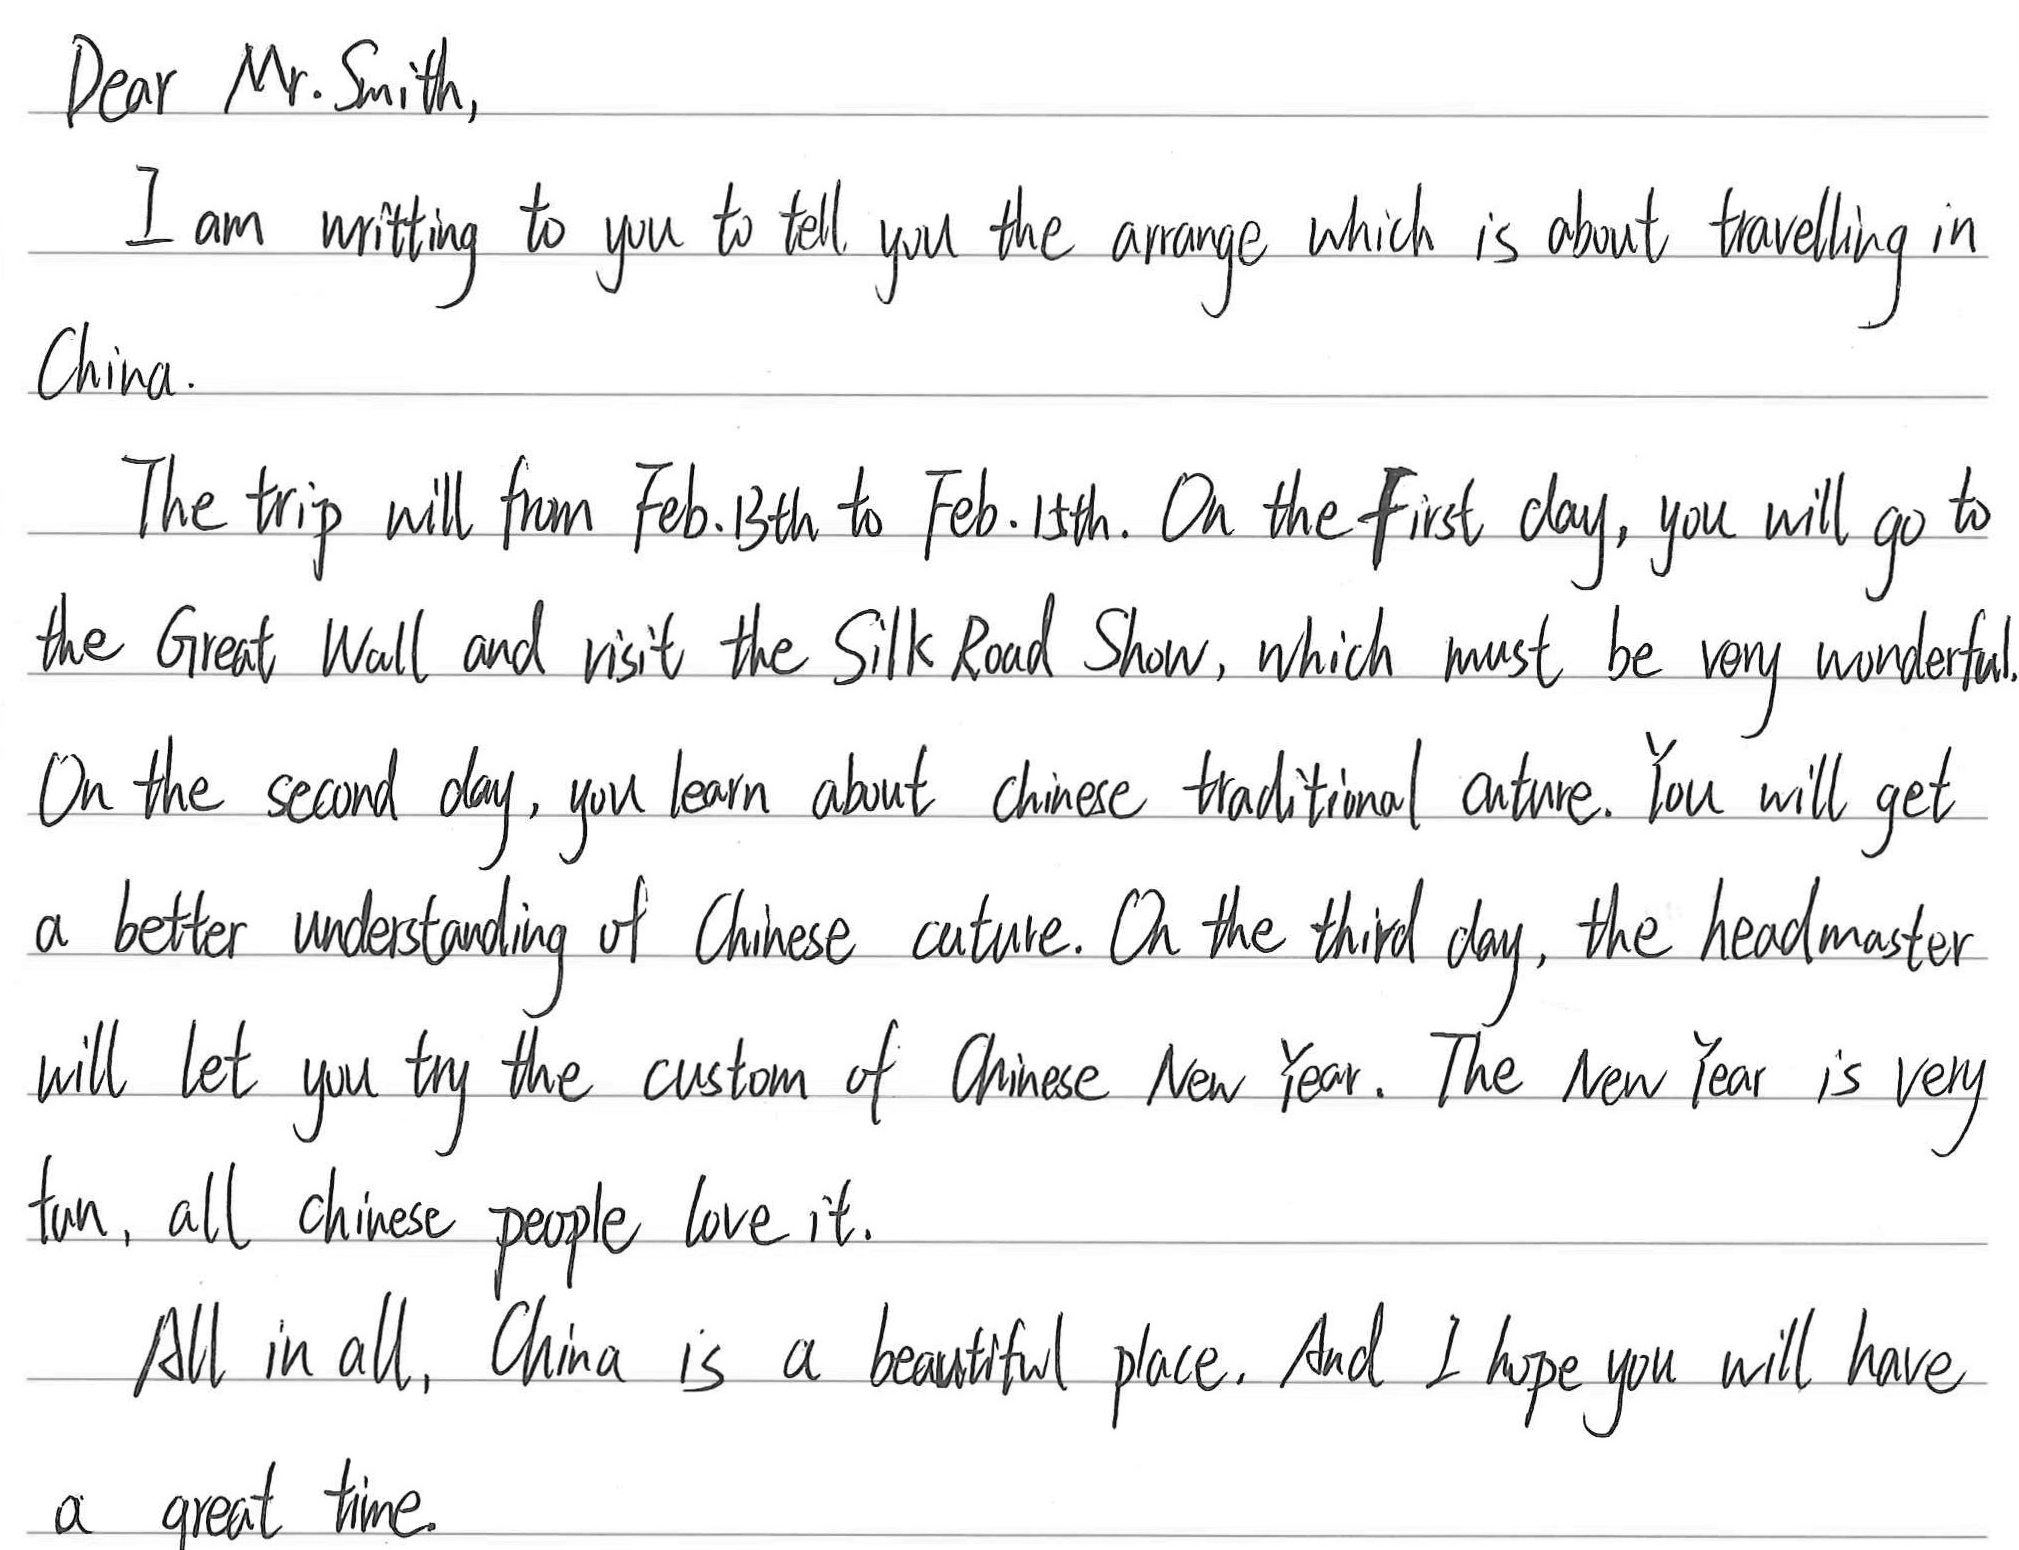 Dear Mr. Smith,
I am writting to you to tell you the arrange which is about travelling in
China.
The trip will from Feb. 13th to Feb. 15th. On the First day, you will go to
the Great Wall and visit the Silk Road Show, which must be very wonderful.
On the second day, you learn about chinese traditional cuture. You will get
a better understanding of Chinese cuture. On the third day, the headmaster
will let you try the custom of Chinese New Year. The New Year is very
fun, all chinese people love it.
All in all, China is a beautiful place. And I hope you will have
a great time.